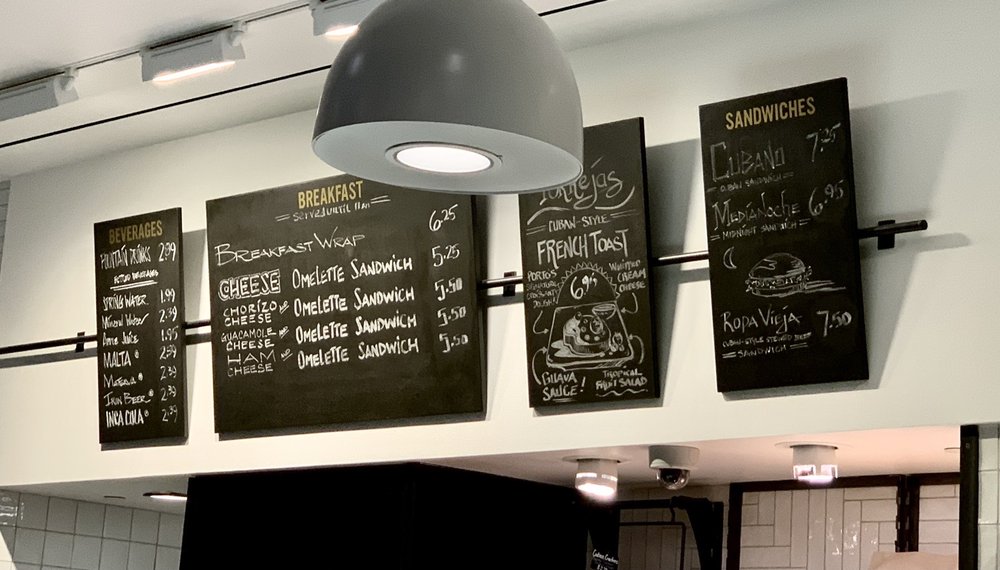 BEVERAGES
FOUNTAIN DRINKS 2.99
BOTTLED BEVERAGES
SPRING WATER 1.99
Mineral Water 2.39
Juice 1.95
MALTA
Materva 2.39
IRON BEER 2.39
INCA COLA 2.39
BREAKFAST
SERVED UNTIL 11am
BREAKFAST WRAP 6.25
CHEESE OMELETTE SANDWICH 5.25
CHORIZO CHEESE OMELETTE SANDWICH 5.50
GUACAMOLE CHEESE OMELETTE SANDWICH 5.50
HAM CHEESE OMELETTE SANDWICH 5.50
Torrejas
CUBAN-STYLE
FRENCH TOAST
PORTO'S
SIGNATURE
CROISSANT
DOUGH
6.95
WHIPPED
CREAM
CHEESE
GUAVA
SAUCE!
TROPICAL
FRUIT SALAD
SANDWICHES
CUBANO 7.25
CUBAN SANDWICH
MEDIANOCHE 6.95
MIDNIGHT SANDWICH
ROPA VIEJA 7.50
CUBAN-STYLE STEWED BEEF
SANDWICH